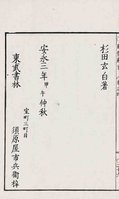 杉田玄白著
安永三年甲午仲秋
室町三町目
東武書林
須原屋市兵衛梓